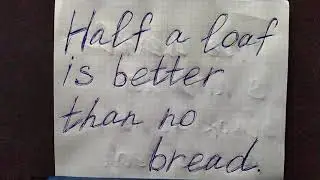 Half a loaf
is better
than no
bread.